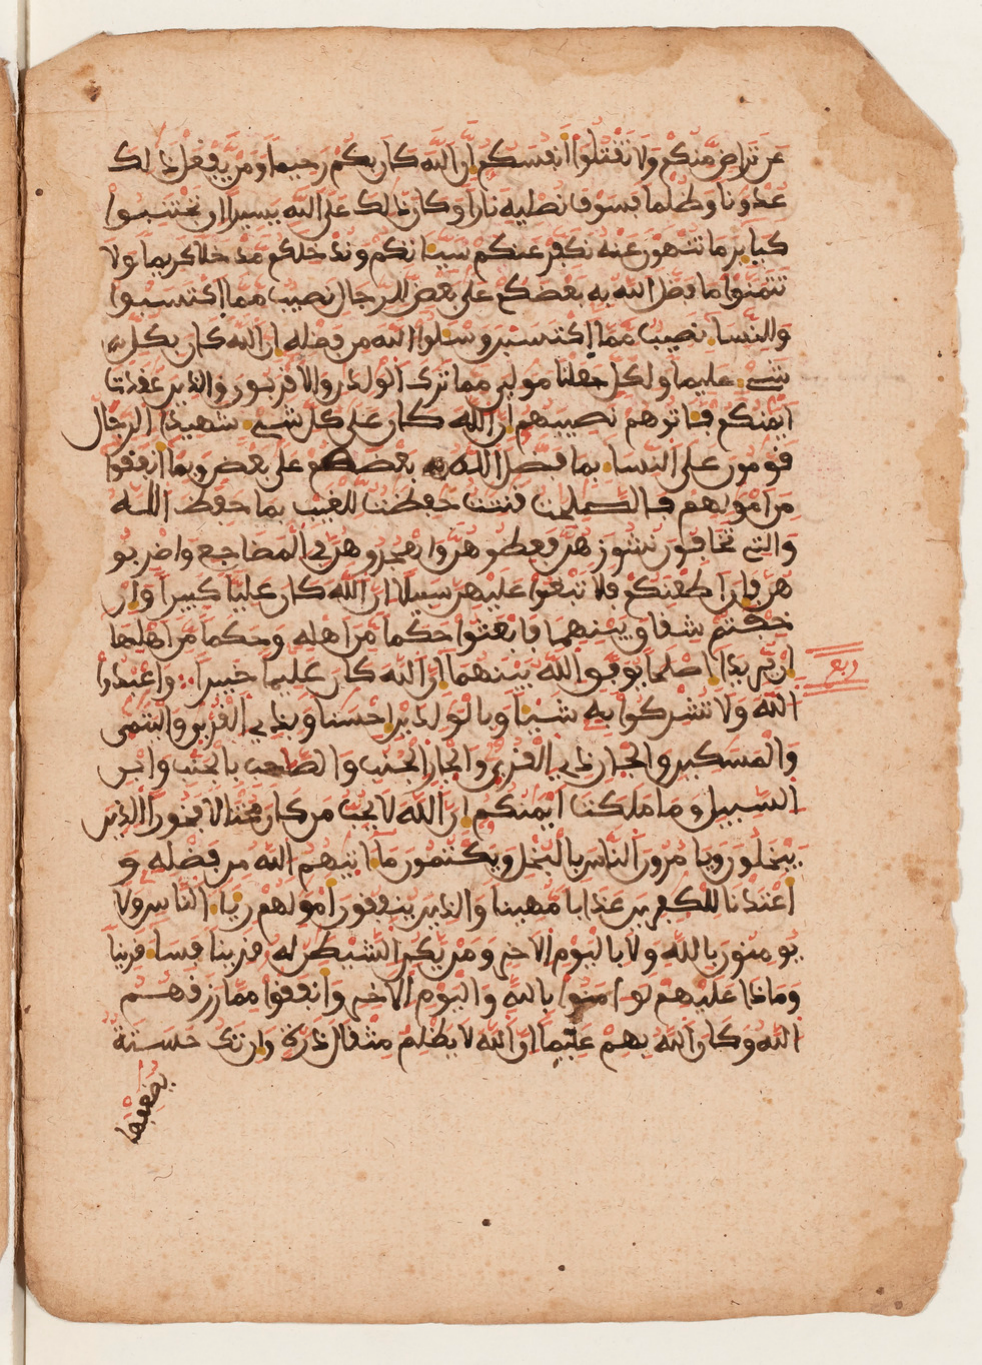 عن تراض منكم ولا تقتلوا أنفسكم إن الله كان بكم رحيما ومن يفعل ذلك
عدونا وظلما فسوف نصليه نارا وكان ذلك على الله يسيرا إن تجتنبوا
كبائر ما تنهون عنه نكفر عنكم سيئاتكم وندخلكم مدخلا كريما ولا
تتمنوا ما فضل الله به بعضكم على بعض للرجال نصيب مما اكتسبوا
وللنساء نصيب مما اكتسبن وسئلوا الله من فضله إن الله كان بكل
شيء عليما ولكل جعلنا مولي مما ترك الولدن والأقربون والذين عقدت
أيمنكم فئاتوهم نصيبهم إن الله كان على كل شيء شهيدا الرجال
قومون على النساء بما فضل الله بعضهم على بعض وبما أنفقوا
من أمولهم فالصلحت قنتت حفظت للغيب بما حفظ الله
والتي تخافون نشوزهن فعظوهن واهجروهن في المضاجع واضربو
هن فإن أطعنكم فلا تبغوا عليهن سبيلا إن الله كان عليا كبيرا وإن
خفتم شقاق بينهما فابعثوا حكما من أهله وحكما من أهلها
إن يريدا إصلحا يوفق الله بينهما إن الله كان عليما خبيرا واعبدوا
ربع
الله ولا تشركوا به شيئا وبالولدين إحسنا وبذي القربى واليتمى
والمسكين والجار ذي القربى والجار الجنب والصاحب بالجنب وابن
السبيل وما ملكت أيمنكم إن الله لا يحب من كان مختالا فخورا الذين
يبخلون ويامرون الناس بالبخل ويكتمون ما ءاتيهم الله من فضله و
أعتدنا للكفرين عذابا مهينا والذين ينفقون أمولهم رئاء الناس ولا
يومنون بالله ولا باليوم الاخر ومن يكن الشيطن له قرينا فساء قرينا
وماذا عليهم لو ءامنوا بالله واليوم الاخر وأنفقوا مما رزقهم
الله وكان الله بهم عليما إن الله لا يظلم مثقال ذرة وإن تك حسنة
يضعفها